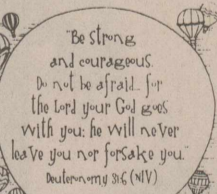 "Be strong
and courageous.
Do not be afraid... for
the Lord your God goes
with you; he will never
leave you nor forsake you."
Deuteronomy 31:6 (NIV)